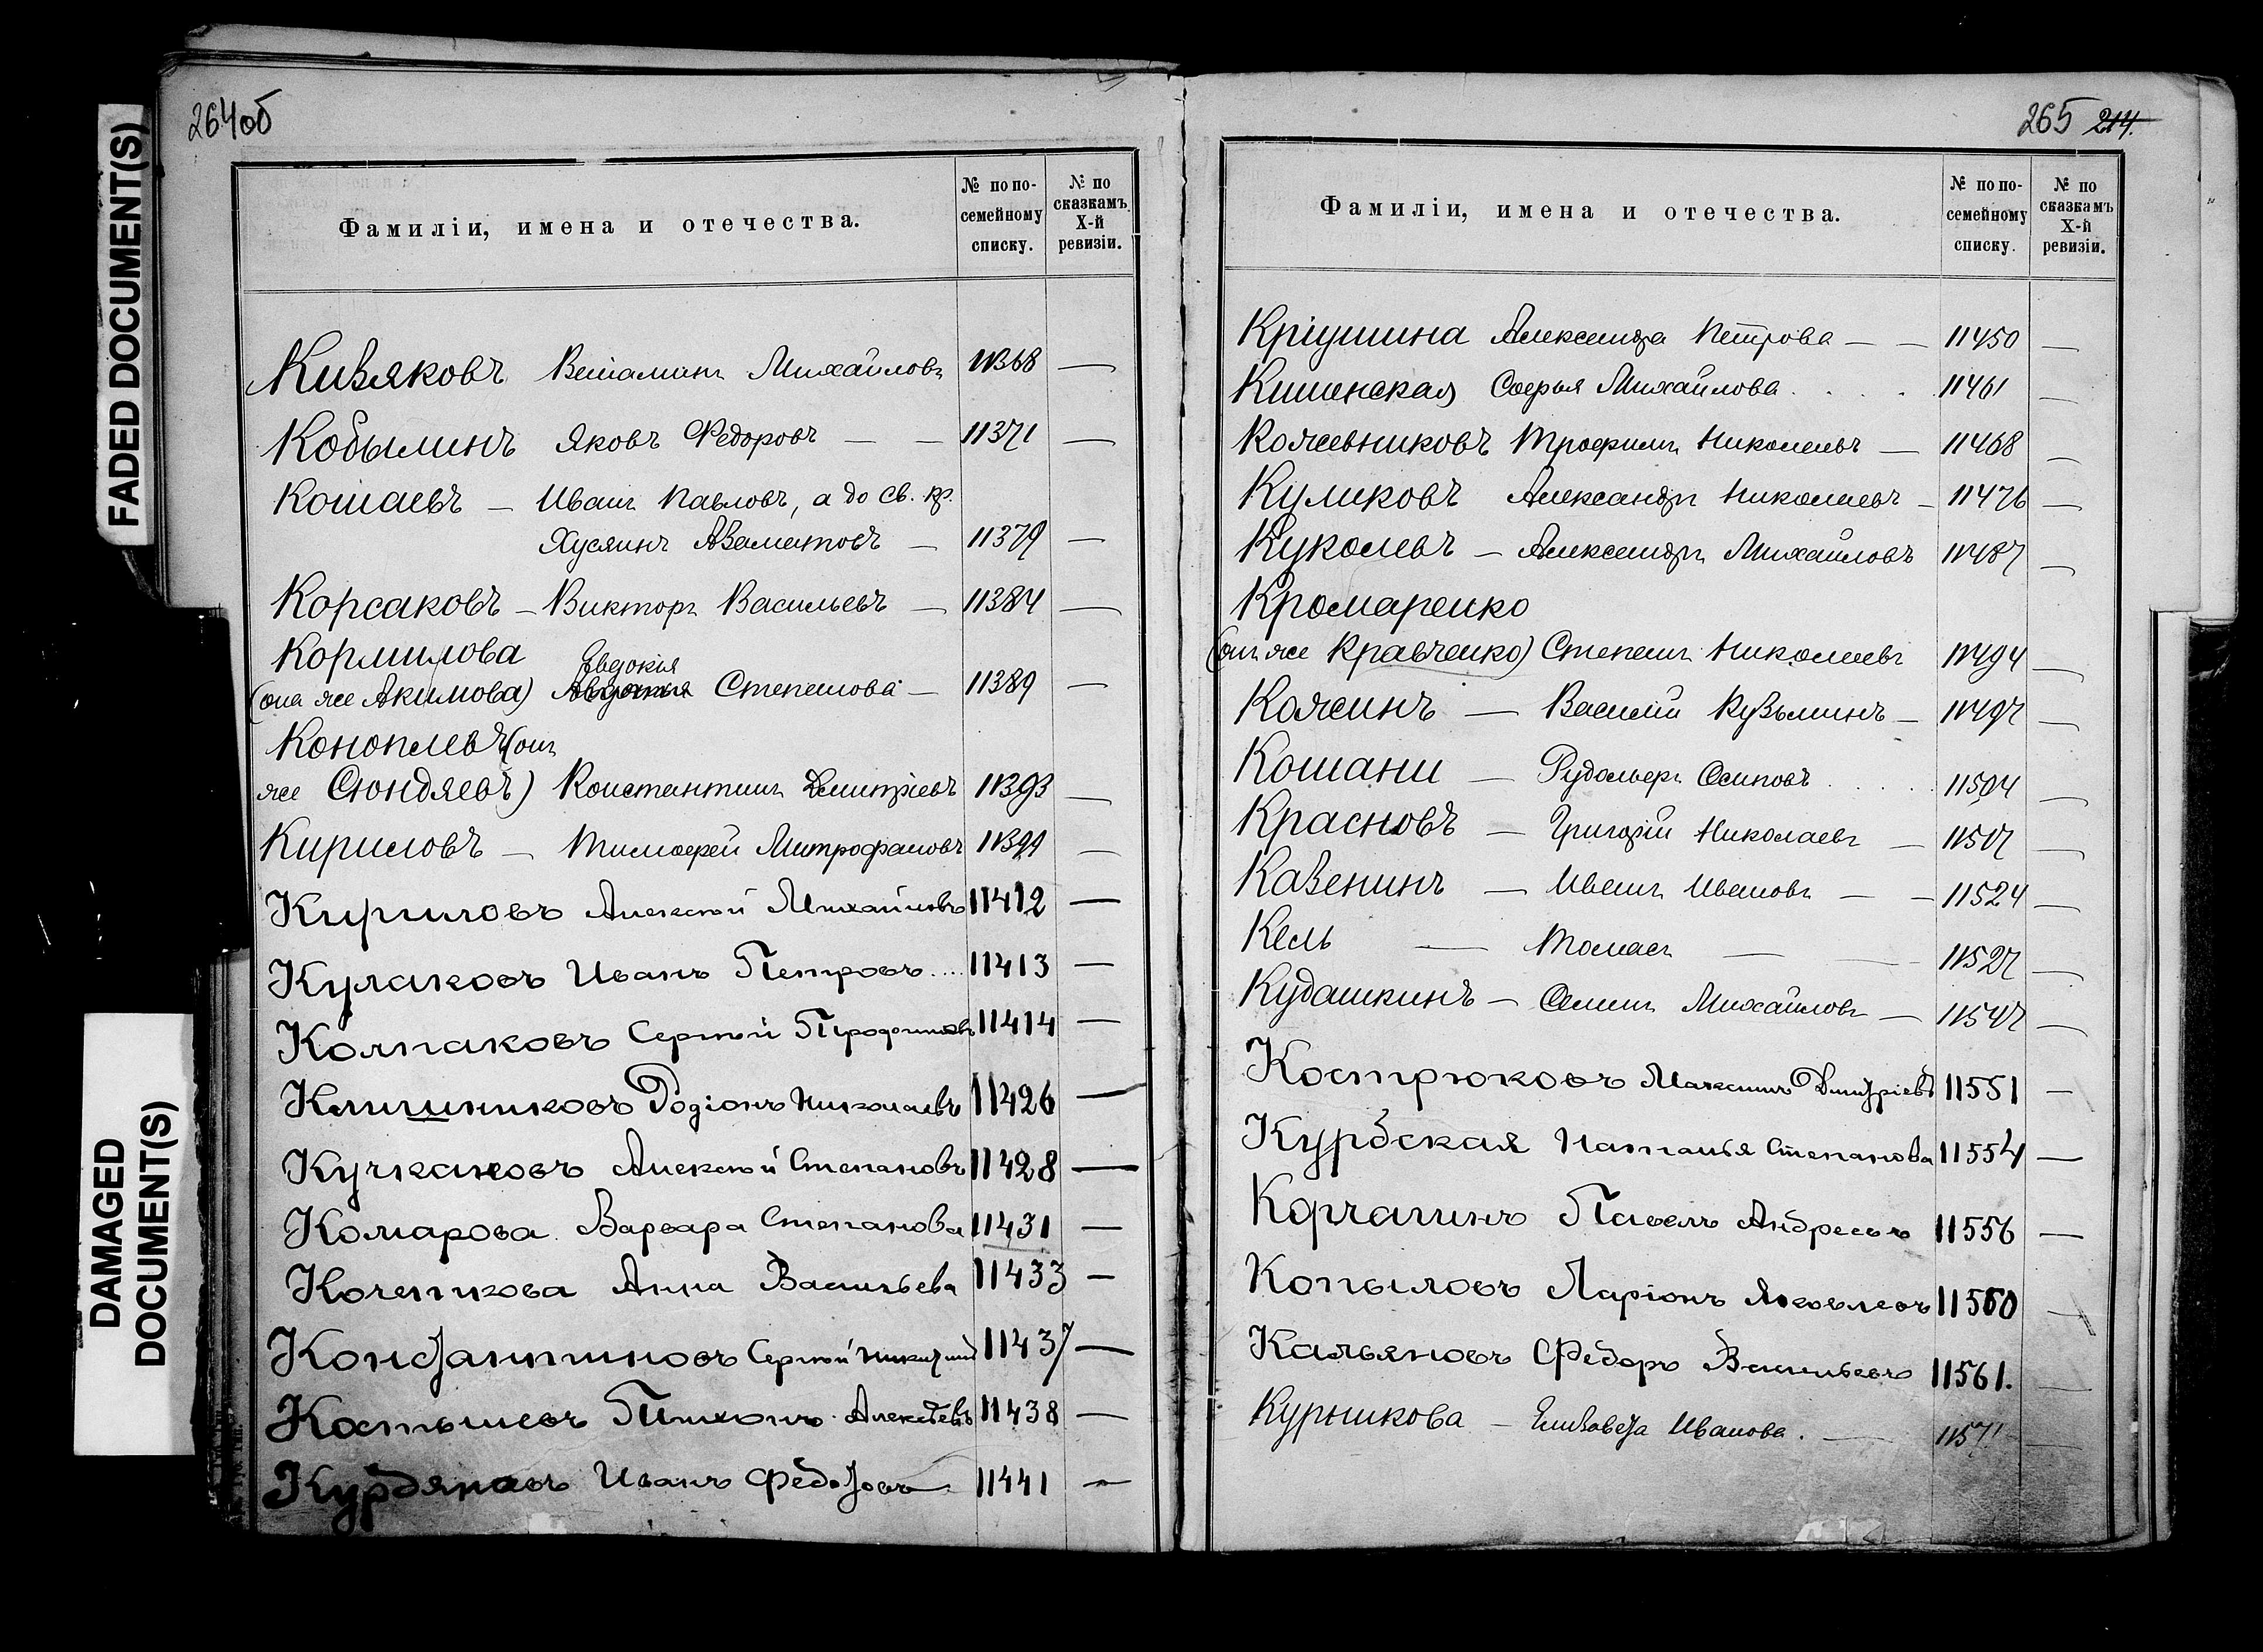 FADED DOCUMENT(S)
DAMAGED
DOCUMENT(S)
264об
Фамиліи, имена и отечества.
№ по по-
семейному
списку.
№ по
сказкамъ
X-й
ревизіи.
Кизяковъ Веніаминъ Михайловъ 11368 —
Кобылинъ Яковъ Федоровъ — — 11371 —
Кошаевъ — Иванъ Павловъ, а до св. кр.
Хусяинъ Азаматовъ — 11379 —
Корсаковъ — Викторъ Васильевъ — 11384 —
Кормилова Евдокія
(она же Акимова) Авдотья Степанова — 11389 —
Коноплевъ (онъ
же Сюндяевъ) Константинъ Дмитріевъ 11393 —
Кириловъ — Тимофей Митрофановъ 11399 —
Кириловъ Алексѣй Михайловъ 11412 —
Кулаковъ Иванъ Петровъ .... 11413 —
Колпаковъ Сергѣй 11414 —
Клишниковъ Родіонъ Николаевъ 11426 —
Кучкановъ Алексѣй Степановъ 11428 —
Комарова Варвара Степанова 11431 —
Коченкова Анна Васильева 11433 —
Константиновъ Сергѣй 11437 —
Костышевъ Тихонъ Алексѣевъ 11438 —
Курдяновъ Иванъ Федотовъ 11441 —
265 214.
Фамиліи, имена и отечества.
№ по по-
семейному
списку.
№ по
сказкамъ
X-й
ревизіи.
Кріушина Александра Петрова — — 11450 —
Кишенская Софья Михайлова . . . . 11461 —
Кожевниковъ Трофимъ Николаевъ — 11468 —
Куликовъ Александръ Николаевъ — 11476 —
Куколевъ — Александръ Михайловъ 11487 —
Кромаренко
(онъ же Кравченко) Степанъ Николаевъ 11494 —
Кожинъ — Василій Кузьминъ — 11497 —
Кошани — Рудольфъ Осиповъ . . . . 11504 —
Красновъ — Григорій Николаевъ — 11507 —
Казенинъ — Иванъ Ивановъ — — 11524 —
Кель — Томасъ — — 11527 —
Кудашкинъ — Михайловъ — 11547 —
Кострюковъ Максимъ Дмитріевъ 11551 —
Курбская Наталья Степанова 11554 —
Корчагинъ Павелъ Андреевъ 11556 —
Копыловъ Ларіонъ Яковлевъ 11560 —
Кальяновъ Федоръ Васильевъ 11561. —
Курышкова — Елизавета Иванова . — 11571 —